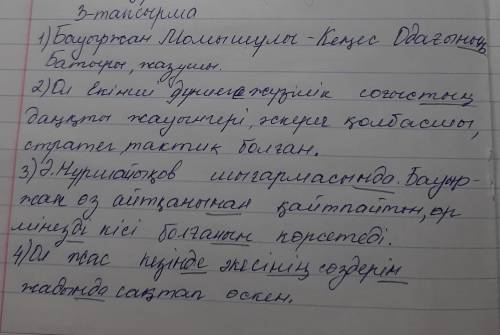 3-тапсырма
1) Бауыржан Момышұлы - Кеңес Одағының
батыры, жазушы.
2) Ол Екінші дүниежүзілік соғыстың
даңқты жауынгері, әскери қолбасшы,
стратег, тактик болған.
3) Ә. Нұршайықов шығармасында. Бауыр-
жан өз айтқанынан қайтпайтын, өр
мінезді кісі болғанын көрсетеді.
4) Ол жас кезінде әкесінің сөздерін
жадында сақтап өскен.